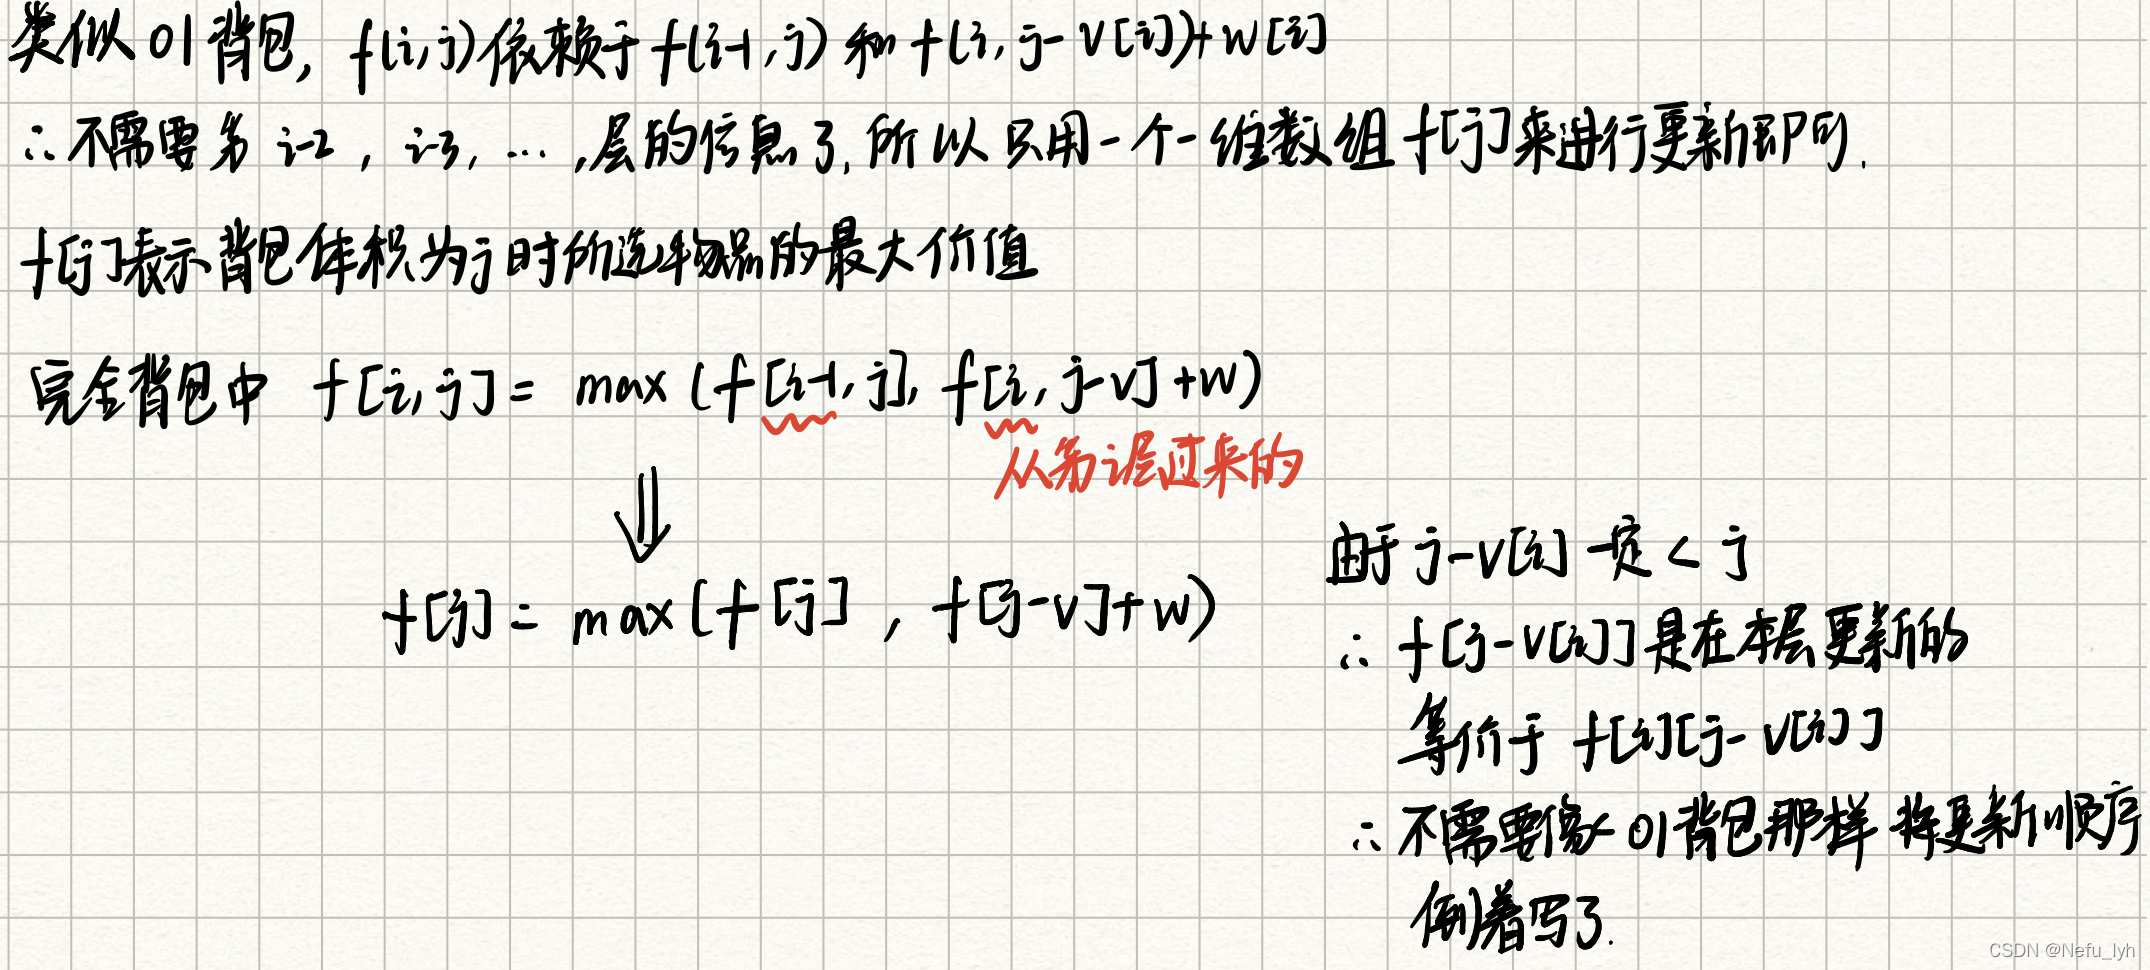 类似01背包, f(i,j)依赖于f(i-1,j)和f(i,j-v[i])+w[i]
∴不需要第 i-2, i-3, ... ,层的信息了,所以只用一个一维数组f[j]来进行更新即可.
f[j]表示背包体积为j时所选物品的最大价值
完全背包中 f[i,j] = max(f[i-1,j], f[i,j-v]+w)
从第i层过来的
⇓
f[j] = max(f[j], f[j-v]+w)
由于 j-v[i] 一定 < j
∴ f[j-v[i]]是在本层更新的
等价于 f[i][j-v[i]]
∴ 不需要像01背包那样将更新顺序
倒着写了.
CSDN @Nefu_lyh